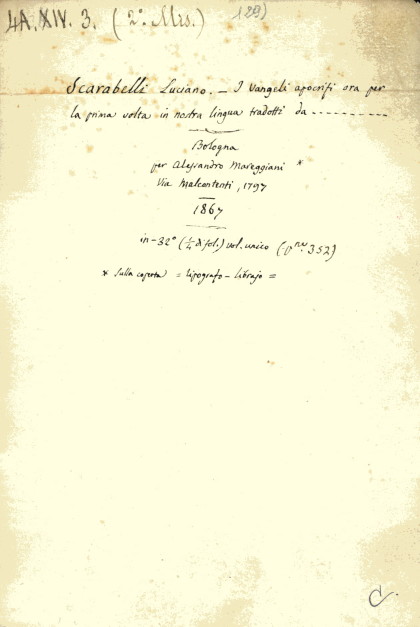 4A. XIV. 3. (2ª Mis.) 129)
Scarabelli Luciano. — I Vangeli apocrifi ora per
la prima volta in nostra lingua tradotti da ----------
Bologna
per Alessandro Mareggiani *
Via Malcontenti, 1797
1867
in-32º (1/4 di fol.) vol. unico (-pne. 352)
* Sulla coperta = tipografo-librajo =
C